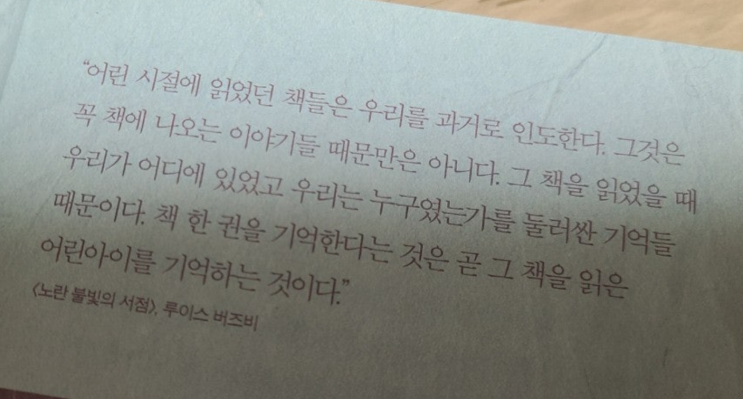 “어린 시절에 읽었던 책들은 우리를 과거로 인도한다. 그것은
꼭 책에 나오는 이야기들 때문만은 아니다. 그 책을 읽었을 때
우리가 어디에 있었고 우리는 누구였는가를 둘러싼 기억들
때문이다. 책 한 권을 기억한다는 것은 곧 그 책을 읽은
어린아이를 기억하는 것이다.”
〈노란 불빛의 서점〉, 루이스 버즈비